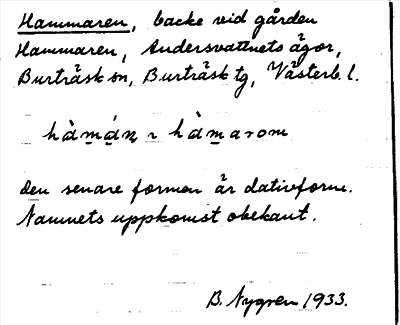 Hammaren, backe vid gården
Hammaren, Andersvattnets ägor,
Burträsk sn, Burträsk tg, Västerb. l.
den senare formen är dativform.
Namnets uppkomst obekant.
B. Nygren 1933.